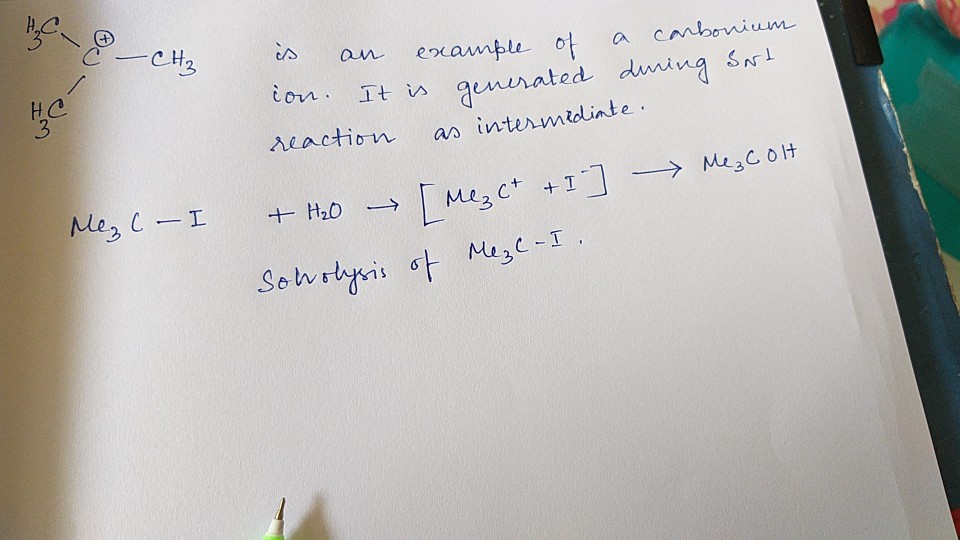 H₃C
C⊕ — CH₃
H₃C
is an example of a carbonium
ion. It is generated during SN1
reaction as intermediate.
Me₃C — I + H₂O → [Me₃C⁺ + I⁻] → Me₃COH
Solvolysis of Me₃C-I.